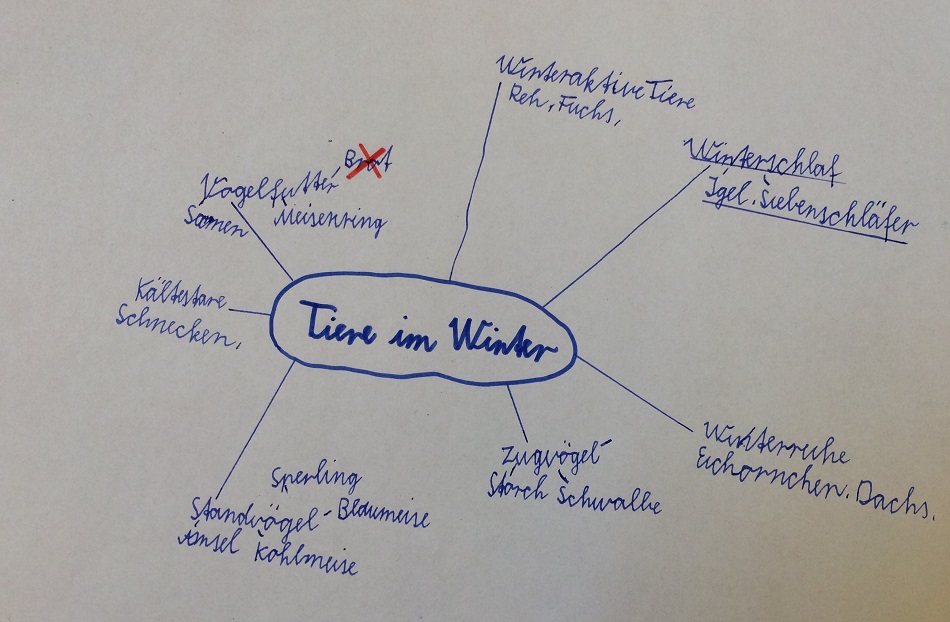 Winteraktive Tiere
Reh, Fuchs,
Winterschlaf
Igel, Siebenschläfer
Brot
Vogelfutter
Samen Meisenring
Kältestare
Schnecken,
Tiere im Winter
Winterruhe
Eichörnchen, Dachs,
Zugvögel
Storch Schwalbe
Sperling
Standvögel - Blaumeise
Amsel Kohlmeise